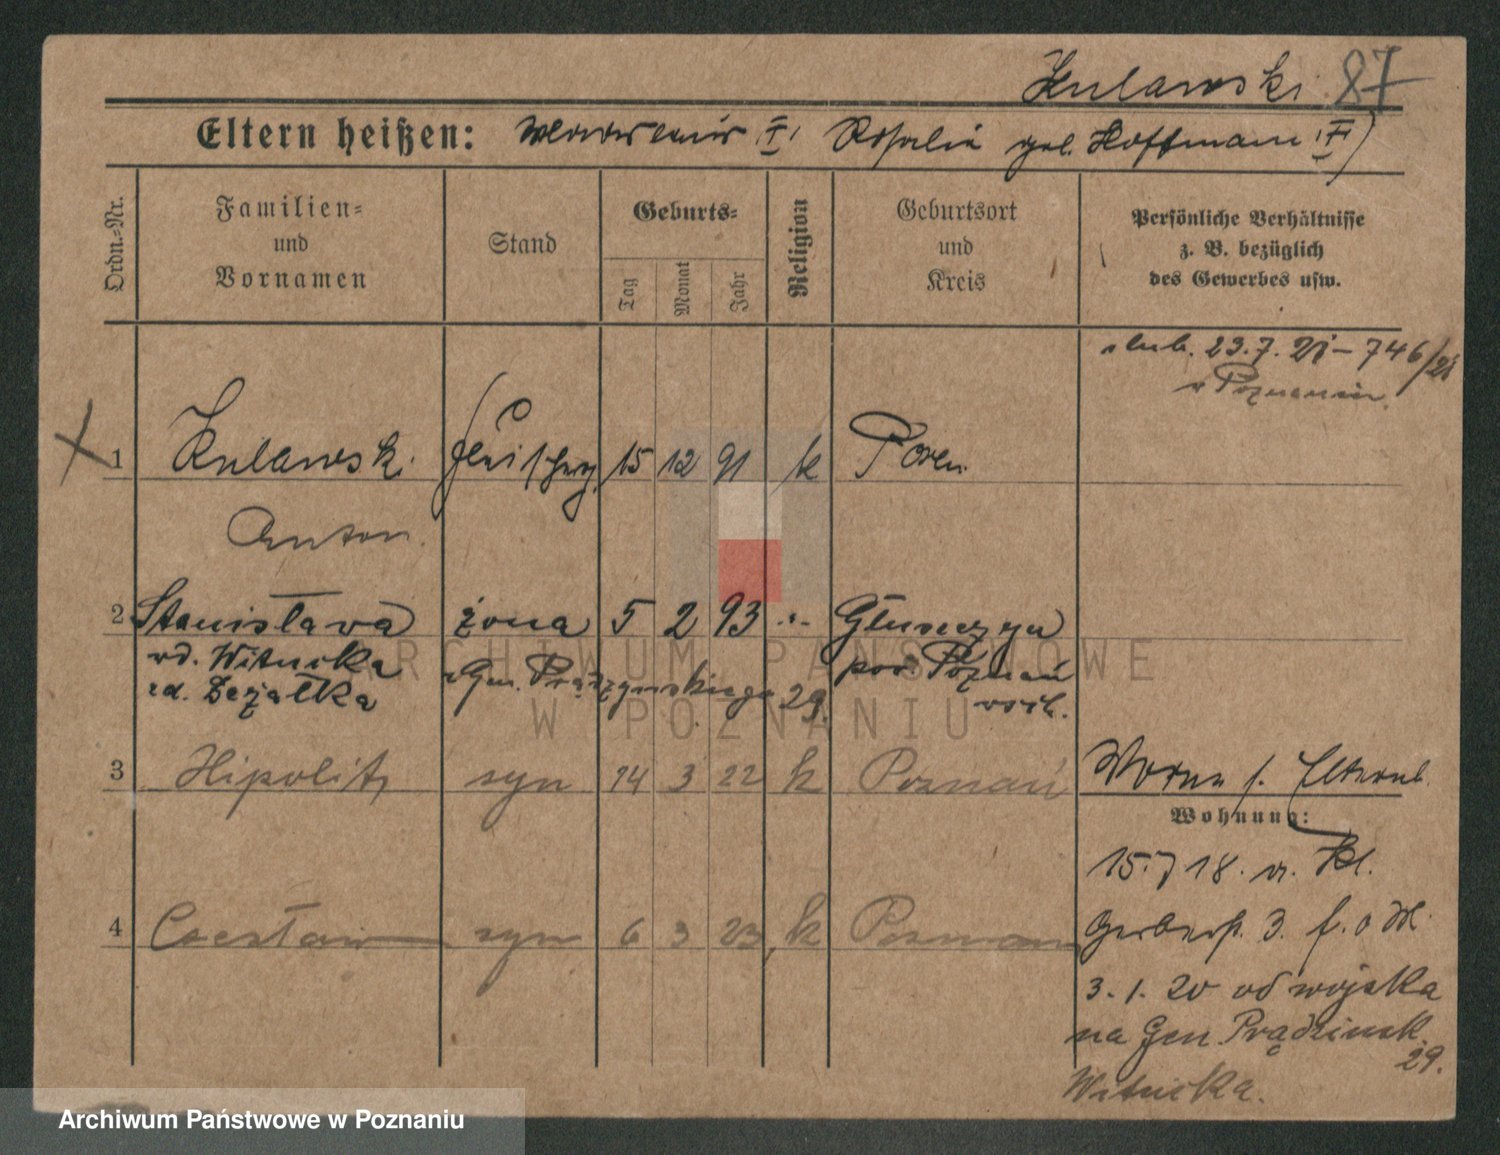 Kulawski 87
Eltern heißen: Rosalie geb. Hoffmann
Ordn.-Nr.
Familien-
und
Vornamen
Stand
Geburts-
Tag
Monat
Jahr
Religion
Geburtsort
und
Kreis
Persönliche Verhältnisse
z. B. bezüglich
des Gewerbes usw.
ślub. 23.7.21 – 746/21
w Poznaniu.
1 Kulawski 15 12 91 k Posen
Anton
2 Stanisława żona 5 2 93 Głuszyna
Witucka pow. Poznań
zd. Dezałka Gen. Prądzynskiego 29. wsch.
3 Hipolit syn 14 3 22 k Poznań
Wohnung:
15.7 18. v. Kl.
4 Czesław syn 6 3 23 k Poznań
Gerberst. 3.
3.1.20 od wojska
na Gen. Prądzinsk.
29.
Witucka.
ARCHIWUM PAŃSTWOWE
W POZNANIU
Archiwum Państwowe w Poznaniu